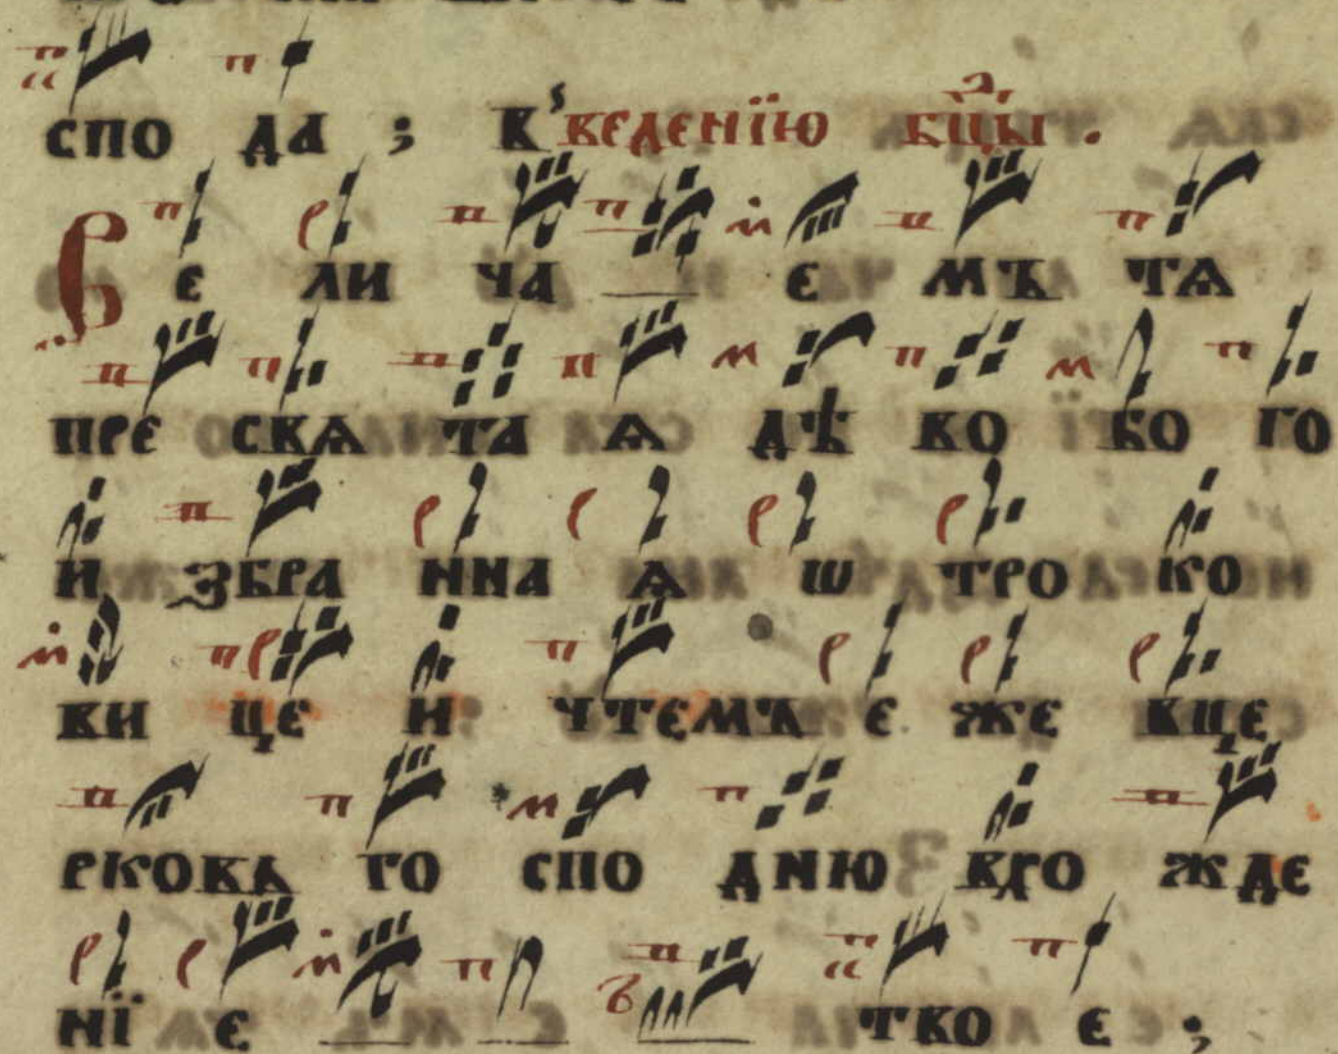 спо да ; К ведению бцы .
Ве ли ча е мъ тѧ
пре свѧ та ѧ дѣ во бо го
и збра нна ѧ ѡ тро ко
ви це и чтемъ е же вце
рковь го спо дню вхо жде
нї е тво е ;